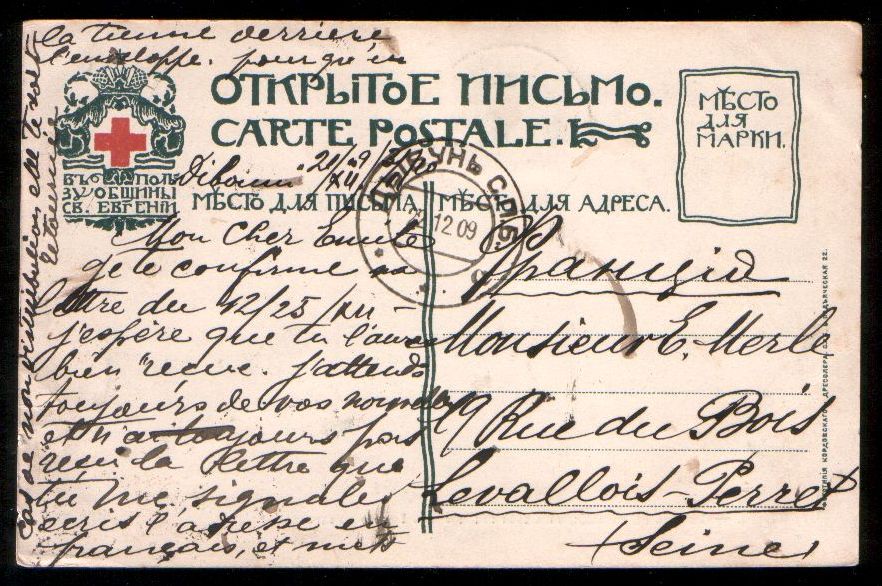 ОТКРЫТОЕ ПИСЬМО.
CARTE POSTALE.
МѢСТО
ДЛЯ
МАРКИ.
ВЪ ПОЛЬ
ЗУ ОБЩИНЫ
СВ. ЕВГЕНІИ
МѢСТО ДЛЯ ПИСЬМА.
МѢСТО ДЛЯ АДРЕСА.
ДИБУНЬ СПБ.
12 09
Mon Cher Emile
je te confirme ma
lettre du 12/25/XII –
j'espère que tu l'auras
bien reçue. j'attends
toujours de vos nouvelles
et n'ai toujours pas
reçu la lettre que
tu me signales
écris l'adresse en
français, et mets
la tienne derrière
l'enveloppe. pour qu'en
cas de non distribution elle te soit
retournée
Франція
Monsieur E. Merle
19 Rue du Bois
Levallois-Perret
(Seine)